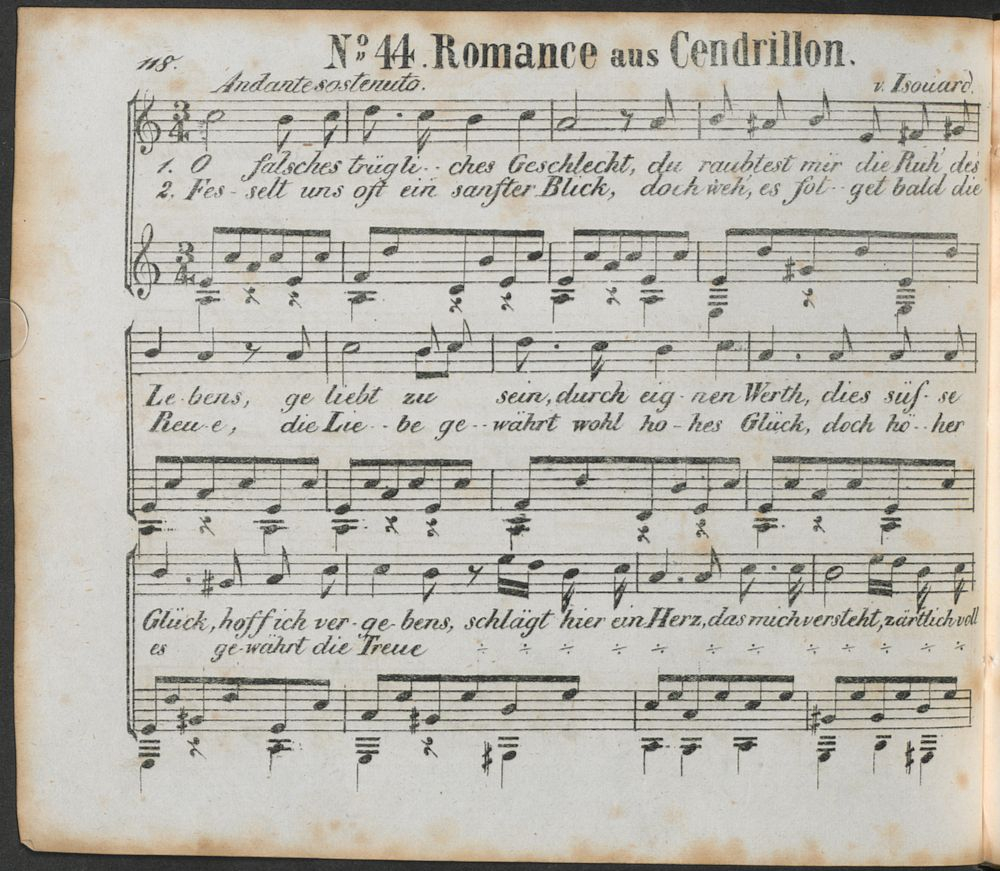 118.
Nº 44. Romance aus Cendrillon.
Andante sostenuto.
v. Isouard.
1. O falsches trügli-ches Geschlecht, du raubtest mir die Ruh, des
2. Fes-selt uns oft ein sanfter Blick, doch weh, es fol-get bald die
Le-bens, ge liebt zu sein, durch eig-nen Werth, dies süs-se
Reu-e, die Lie-be ge-währt wohl ho-hes Glück, doch hö-her
Glück, hoff ich ver-ge-bens, schlägt hier ein Herz, das mich versteht, zärtlich voll
es ge-währt die Treue ÷ ÷ ÷ ÷ ÷ ÷ ÷ ÷ ÷ ÷